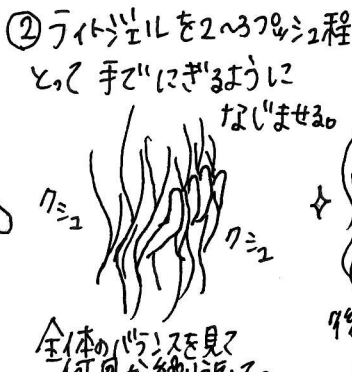 ②ライトジェルを2〜3プッシュ程
とって手でにぎるように
なじませる。
クシュ
クシュ
全体のバランスを見て
何回か繰り返して。
後